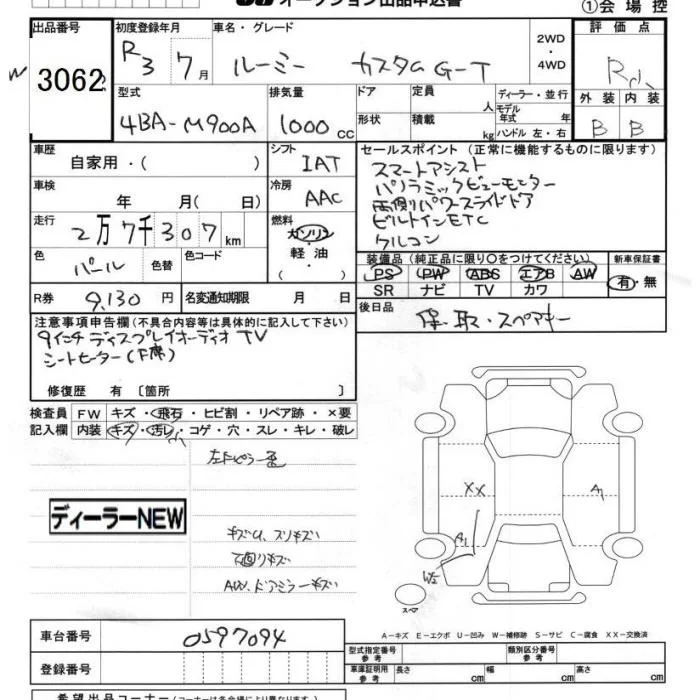 オークション出品申込書
①会場控
出品番号 3062
初度登録年月 R3 7月
車名・グレード ルーミー カスタムG-T
2WD・4WD
評価点 R
外装 B 内装 B
型式 4BA-M900A
排気量 1000cc
ドア 形状
定員 人 積載 kg
ディーラー・並行
モデル年式 年
ハンドル 左・右
車歴 自家用・( )
シフト IAT
車検 年 月( 日)
冷房 AAC
走行 2万7千307km
燃料 ガソリン・軽油・( )
色 パール 色替 色コード
R券 9,130円
名変通知期限 月 日
セールスポイント(正常に機能するものに限ります)
スマートアシスト
パノラミックビューモニター
両側パワースライドドア
ビルトインETC
クルコン
装備品(純正品に限り○をつけてください)
PS PW ABS エアB AW
SR ナビ TV カワ
新車保証書 有・無
後日品 保・取・スペアキー
注意事項申告欄(不具合内容等は具体的に記入して下さい)
9インチディスプレイオーディオ TV
シートヒーター(F席)
修復歴 有 〔箇所 〕
検査員記入欄
FW キズ・飛石・ヒビ割・リペア跡・×要
内装 キズ・汚レ・コゲ・穴・スレ・キレ・破レ
ディーラーNEW
キズU、スリキズ
下回りキズ
AW、ドアミラーキズ
XX
A1
A1
W2
スペア
A-キズ E-エクボ U-凹み W-補修跡 S-サビ C-腐食 XX-交換済
車台番号 0597094
登録番号
型式指定番号 参考
類別区分番号 参考
車庫証明用 参考 長さ cm 幅 cm 高さ cm
希望出品コーナー(コーナーは各会場により異なります)